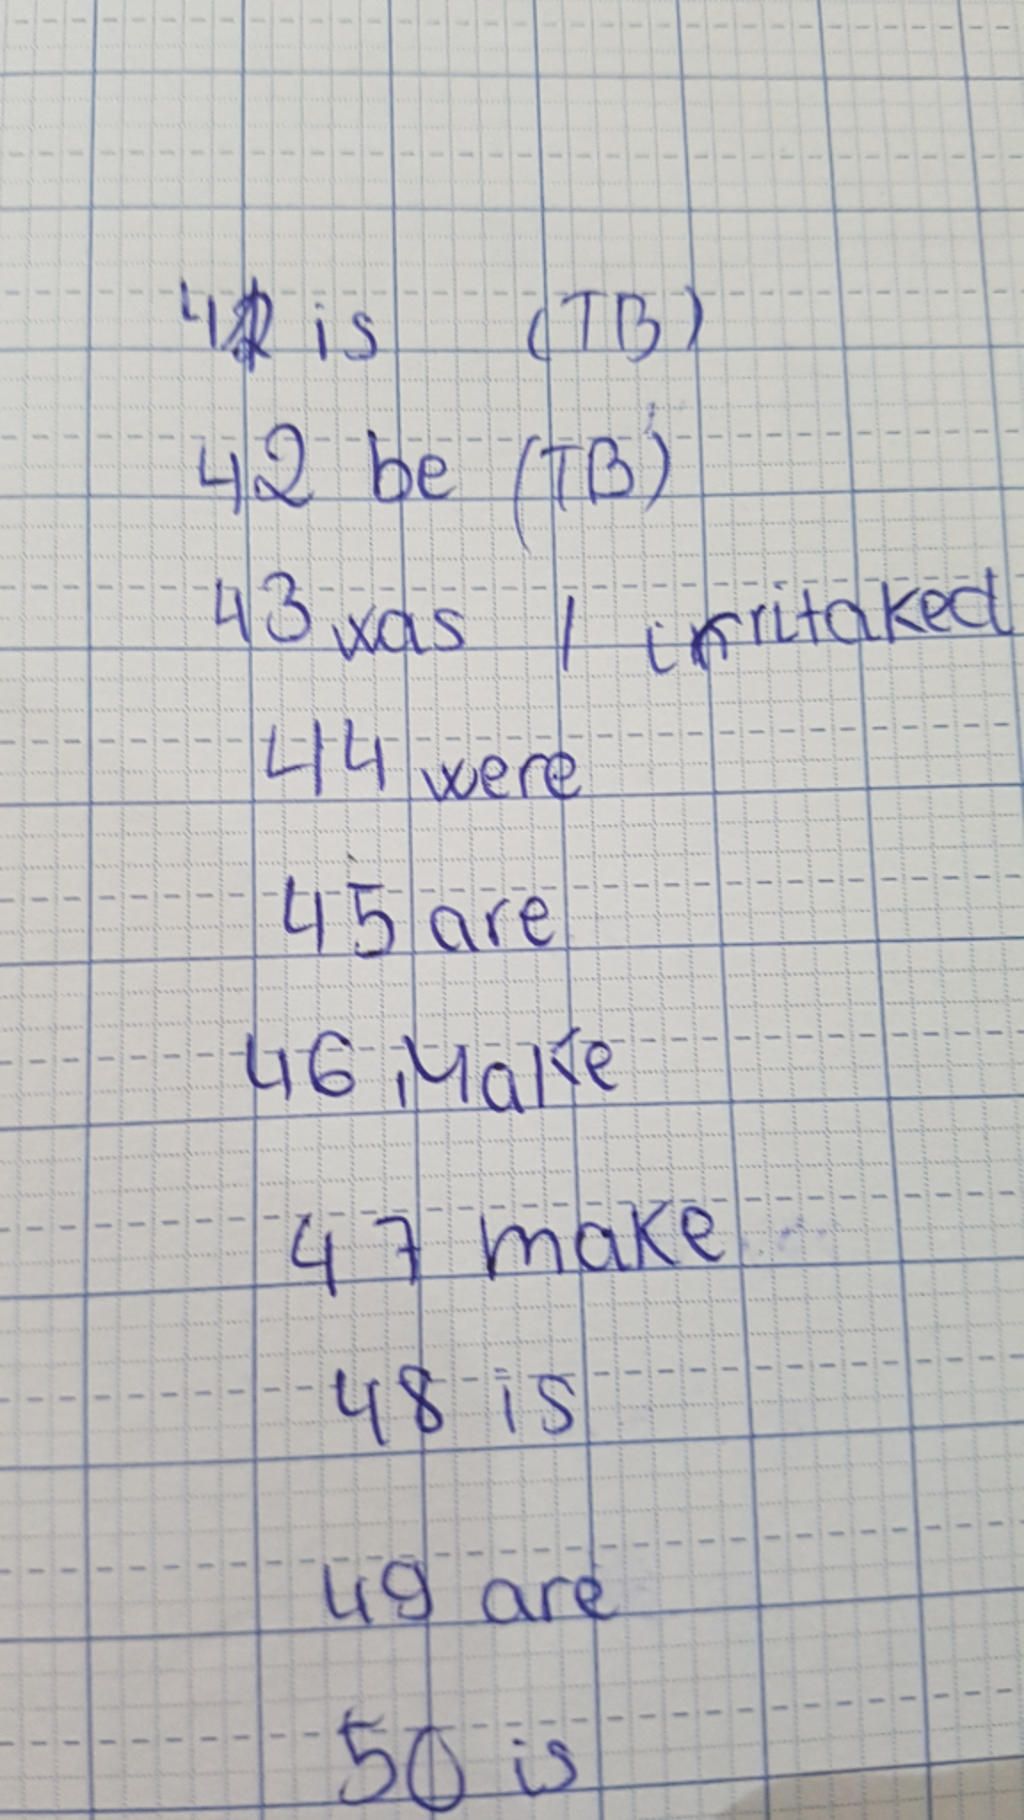 41 is (TB)
42 be (TB)
43 was / irritaked
44 were
45 are
46 Make
47 make
48 is
49 are
50 is